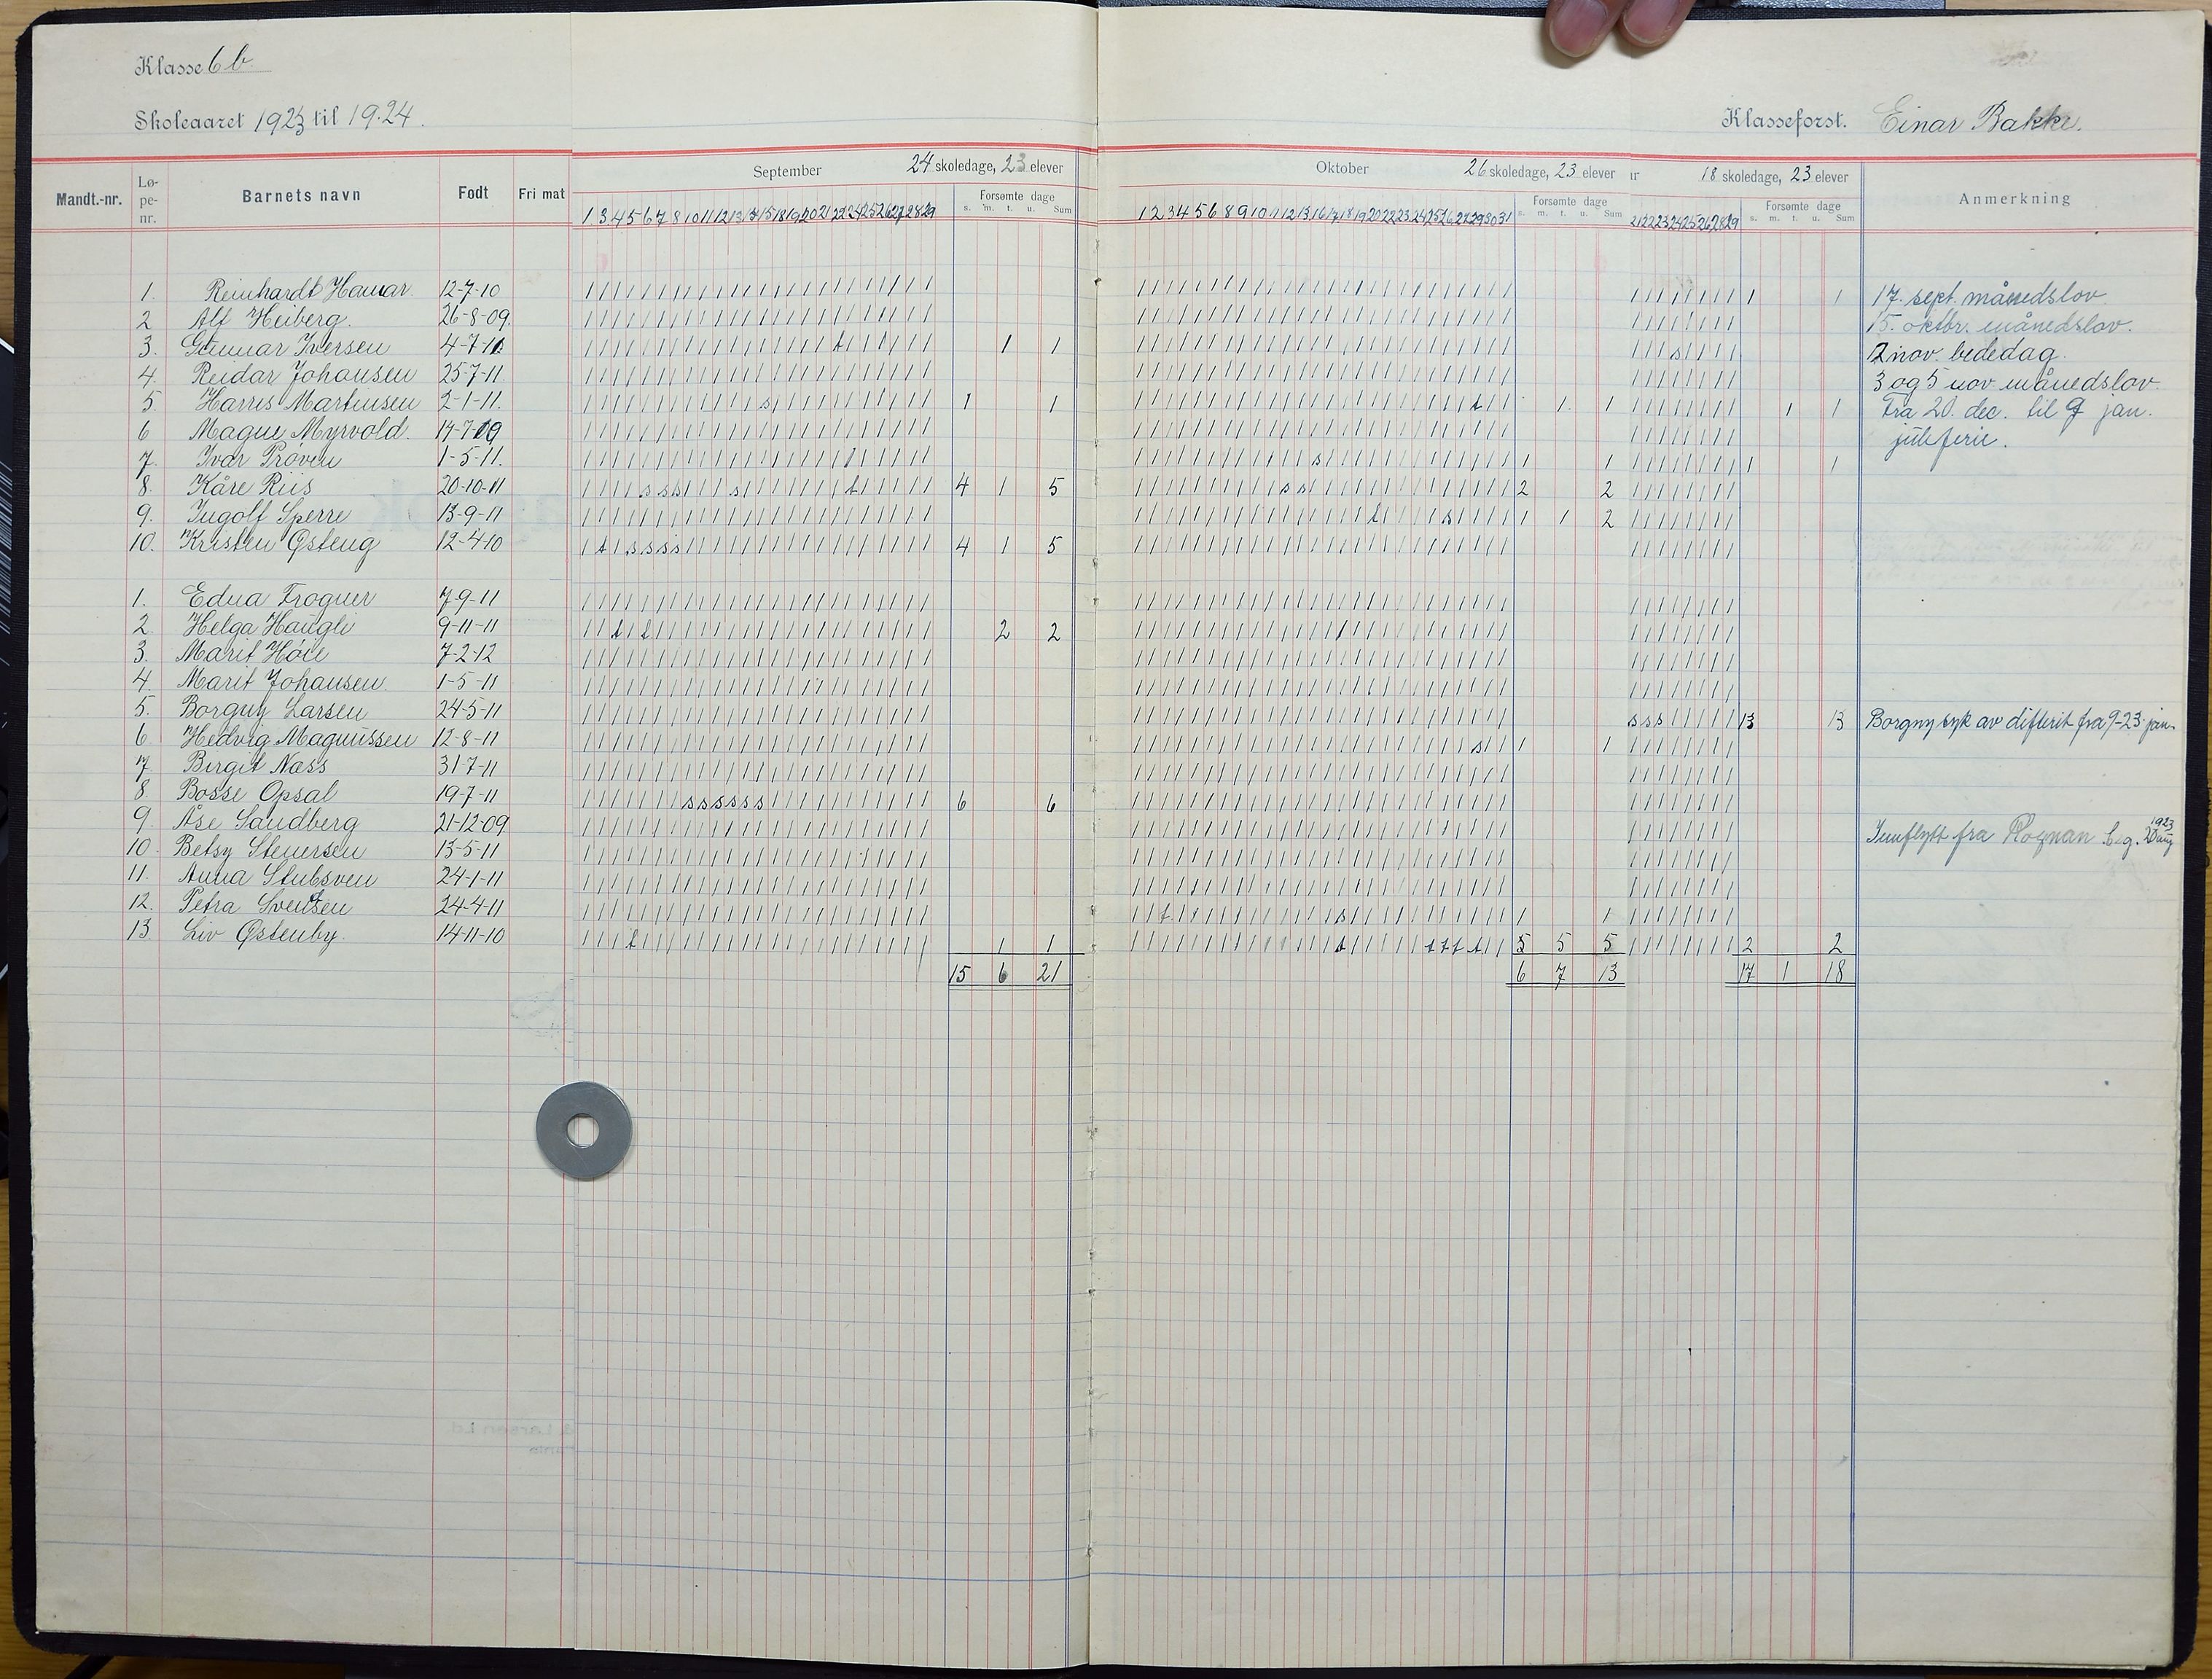 Klasse 6 b.
Skoleaaret 1923 til 19.24.
Klasseforst. Einar Bakke.
Mandt.-nr. Lø-pe-nr. Barnets navn Født Fri mat
September 24 skoledage, 23 elever
Forsømte dage
s. m. t. u. Sum
Oktober 26 skoledage, 23 elever
Forsømte dage
s. m. t. u. Sum
ur 18 skoledage, 23 elever
Forsømte dage
s. m. t. u. Sum
Anmerkning
1 3 4 5 6 7 8 10 11 12 13 14 15 18 19 20 21 22 24 25 26 27 28 29
1 2 3 4 5 6 8 9 10 11 12 13 16 17 18 19 20 22 23 24 25 26 27 29 30 31
21 22 23 24 25 26 28 29
1. Reinhardt Hamar. 12-7-10 1 1 17. sept. månedslov
2 Alf Heiberg. 26-8-09. 15. oktbr. månedslov.
3. Gunnar Iversen 4-7-11 1 1 2 nov. bededag.
4. Reidar Johansen 25-7-11. 3 og 5 nov. månedslov.
5. Harris Martinsen 2-1-11. 1 1 1 1 1 1 Fra 20. dec. til 9 jan.
6 Magne Myrvold. 14-7-09 juleferie.
7. Ivar Prøven 1-5-11. 1 1 1 1
8. Kåre Riis 20-10-11 4 1 5 2 2
9. Ingolf Sperre 13-9-11 1 1 2
10. Kristen Østeng 12-4-10 4 1 5
1. Edna Frogner 7-9-11
2. Helga Haugli 9-11-11 2 2
3. Marit Høie 7-2-12
4. Marit Johansen 1-5-11
5. Borgny Larsen 24-5-11 sss 13 13 Borgny syk av difterit fra 9-23 jan.
6 Hedvig Magnussen 12-8-11 1 1
7. Birgit Næss 31-7-11
8. Bosse Opsal 19-7-11 ssssss 6 6
9. Åse Sandberg 21-12-09 Innflytt fra Rognan beg. 1923
10. Betsy Stenersen 13-5-11
11. Anna Stubsveen 24-1-11
12. Petra Svendsen 24-4-11 1 1
13 Liv Østenby. 14-11-10 1 1 5 5 5 2 2
15 6 21 6 7 13 17 1 18